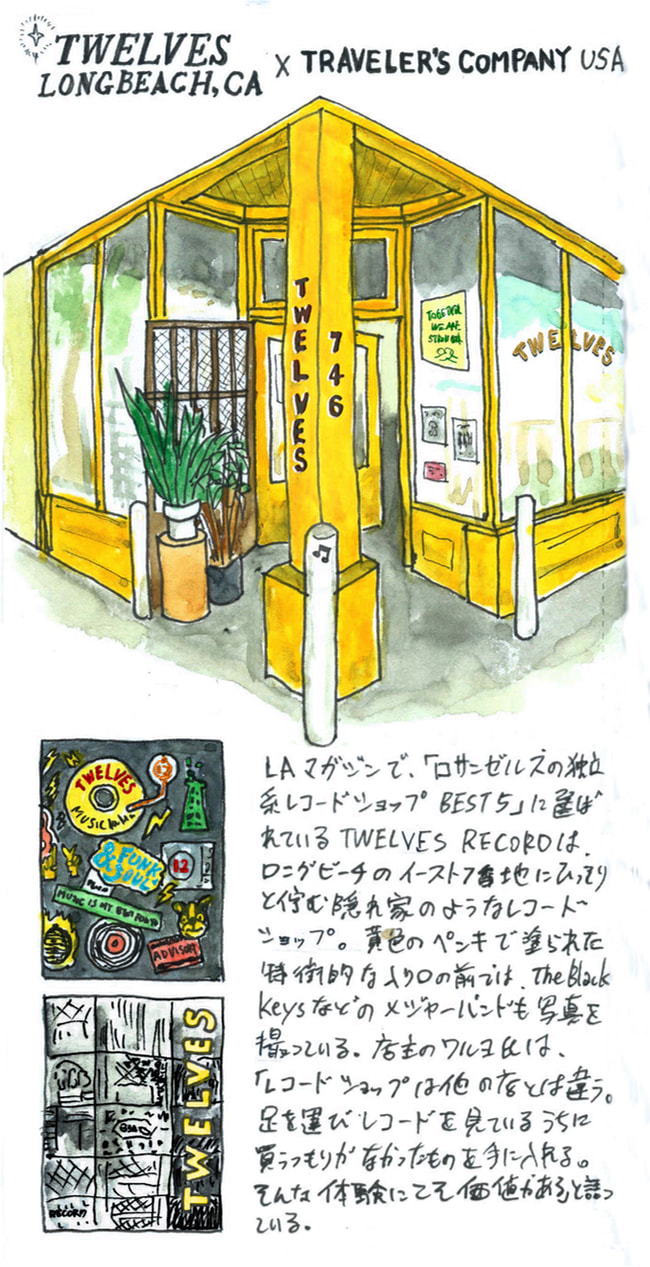 TWELVES
LONGBEACH, CA X TRAVELER'S COMPANY USA
TWELVES
746
TOGETHER
WE ARE
STRONGER
TWELVES
TWELVES
MUSIC
12
& FUNK
& SOUL
12
MUSIC IS MY
ADVISORY
TWELVES
RECORD
LAマガジンで、「ロサンゼルスの独立
系レコードショップ BEST5」に選ば
れているTWELVES RECORDは、
ロングビーチのイースト7番地にひっそり
と佇む隠れ家のようなレコード
ショップ。黄色のペンキで塗られた
特徴的な入り口の前では、The Black
Keysなどのメジャーバンドも写真を
撮っている。店主のワルヨ氏は、
「レコードショップは他の店とは違う。
足を運びレコードを見ているうちに
買うつもりがなかったものを手に入れる。
そんな体験にこそ価値がある」と語っ
ている。